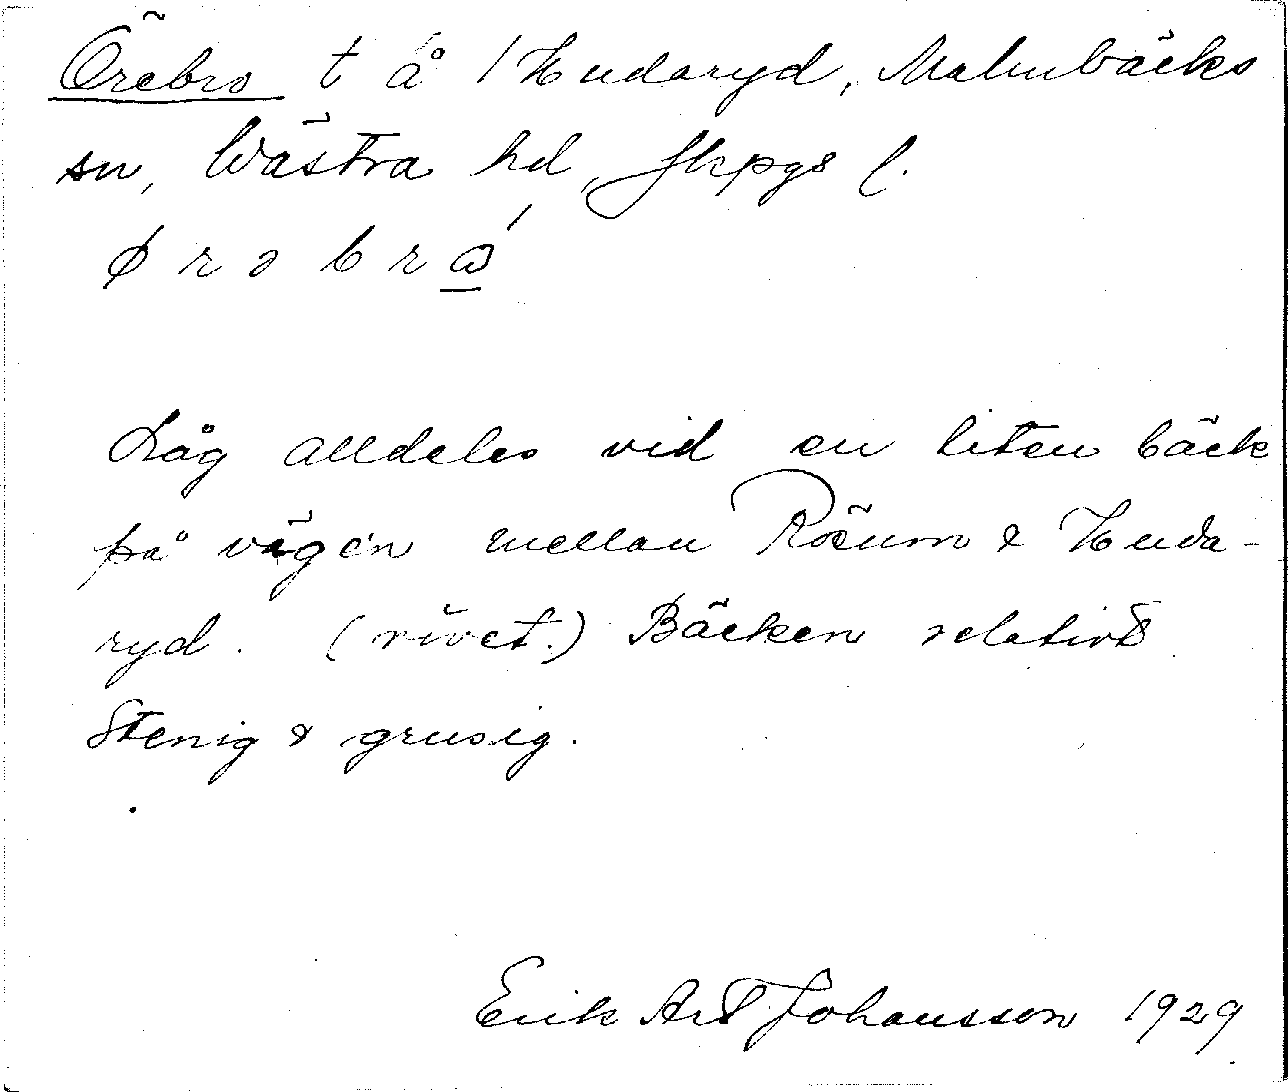 Örebro t å 1 Hudaryd, Malmbäcks
sn, Västra hd, Jkpgs l.
Låg alldeles vid en liten bäck
på vägen mellan Röeum & Huda-
ryd. (rivet.) Bäcken relativt
Stenig & grusig.
Erik Art Johansson 1929